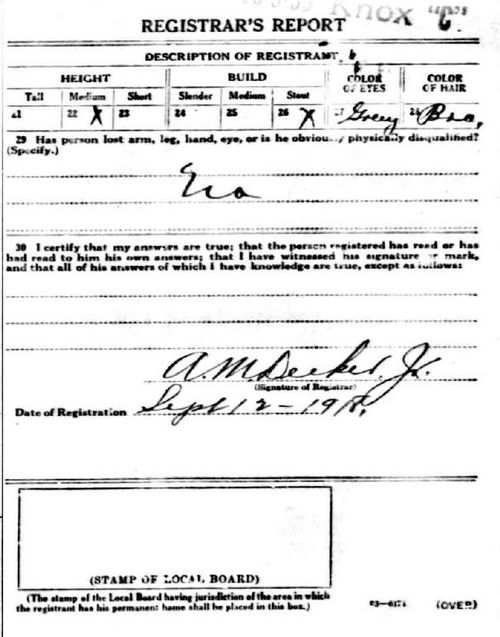 Knox "C"
REGISTRAR'S REPORT
DESCRIPTION OF REGISTRANT
HEIGHT BUILD COLOR OF EYES COLOR OF HAIR
Tall Medium Short Slender Medium Stout
21 22 X 23 24 25 26 X 27 Grey 28 Bro.
29 Has person lost arm, leg, hand, eye, or is he obviously physically disqualified?
(Specify.)
30 I certify that my answers are true; that the person registered has read or has
had read to him his own answers; that I have witnessed his signature or mark,
and that all of his answers of which I have knowledge are true, except as follows:
A. M. Decker, Jr.
(Signature of Registrar)
Date of Registration Sept 12 - 1918.
(STAMP OF LOCAL BOARD)
(The stamp of the Local Board having jurisdiction of the area in which
the registrant has his permanent home shall be placed in this box.)
03—6171 (OVER)